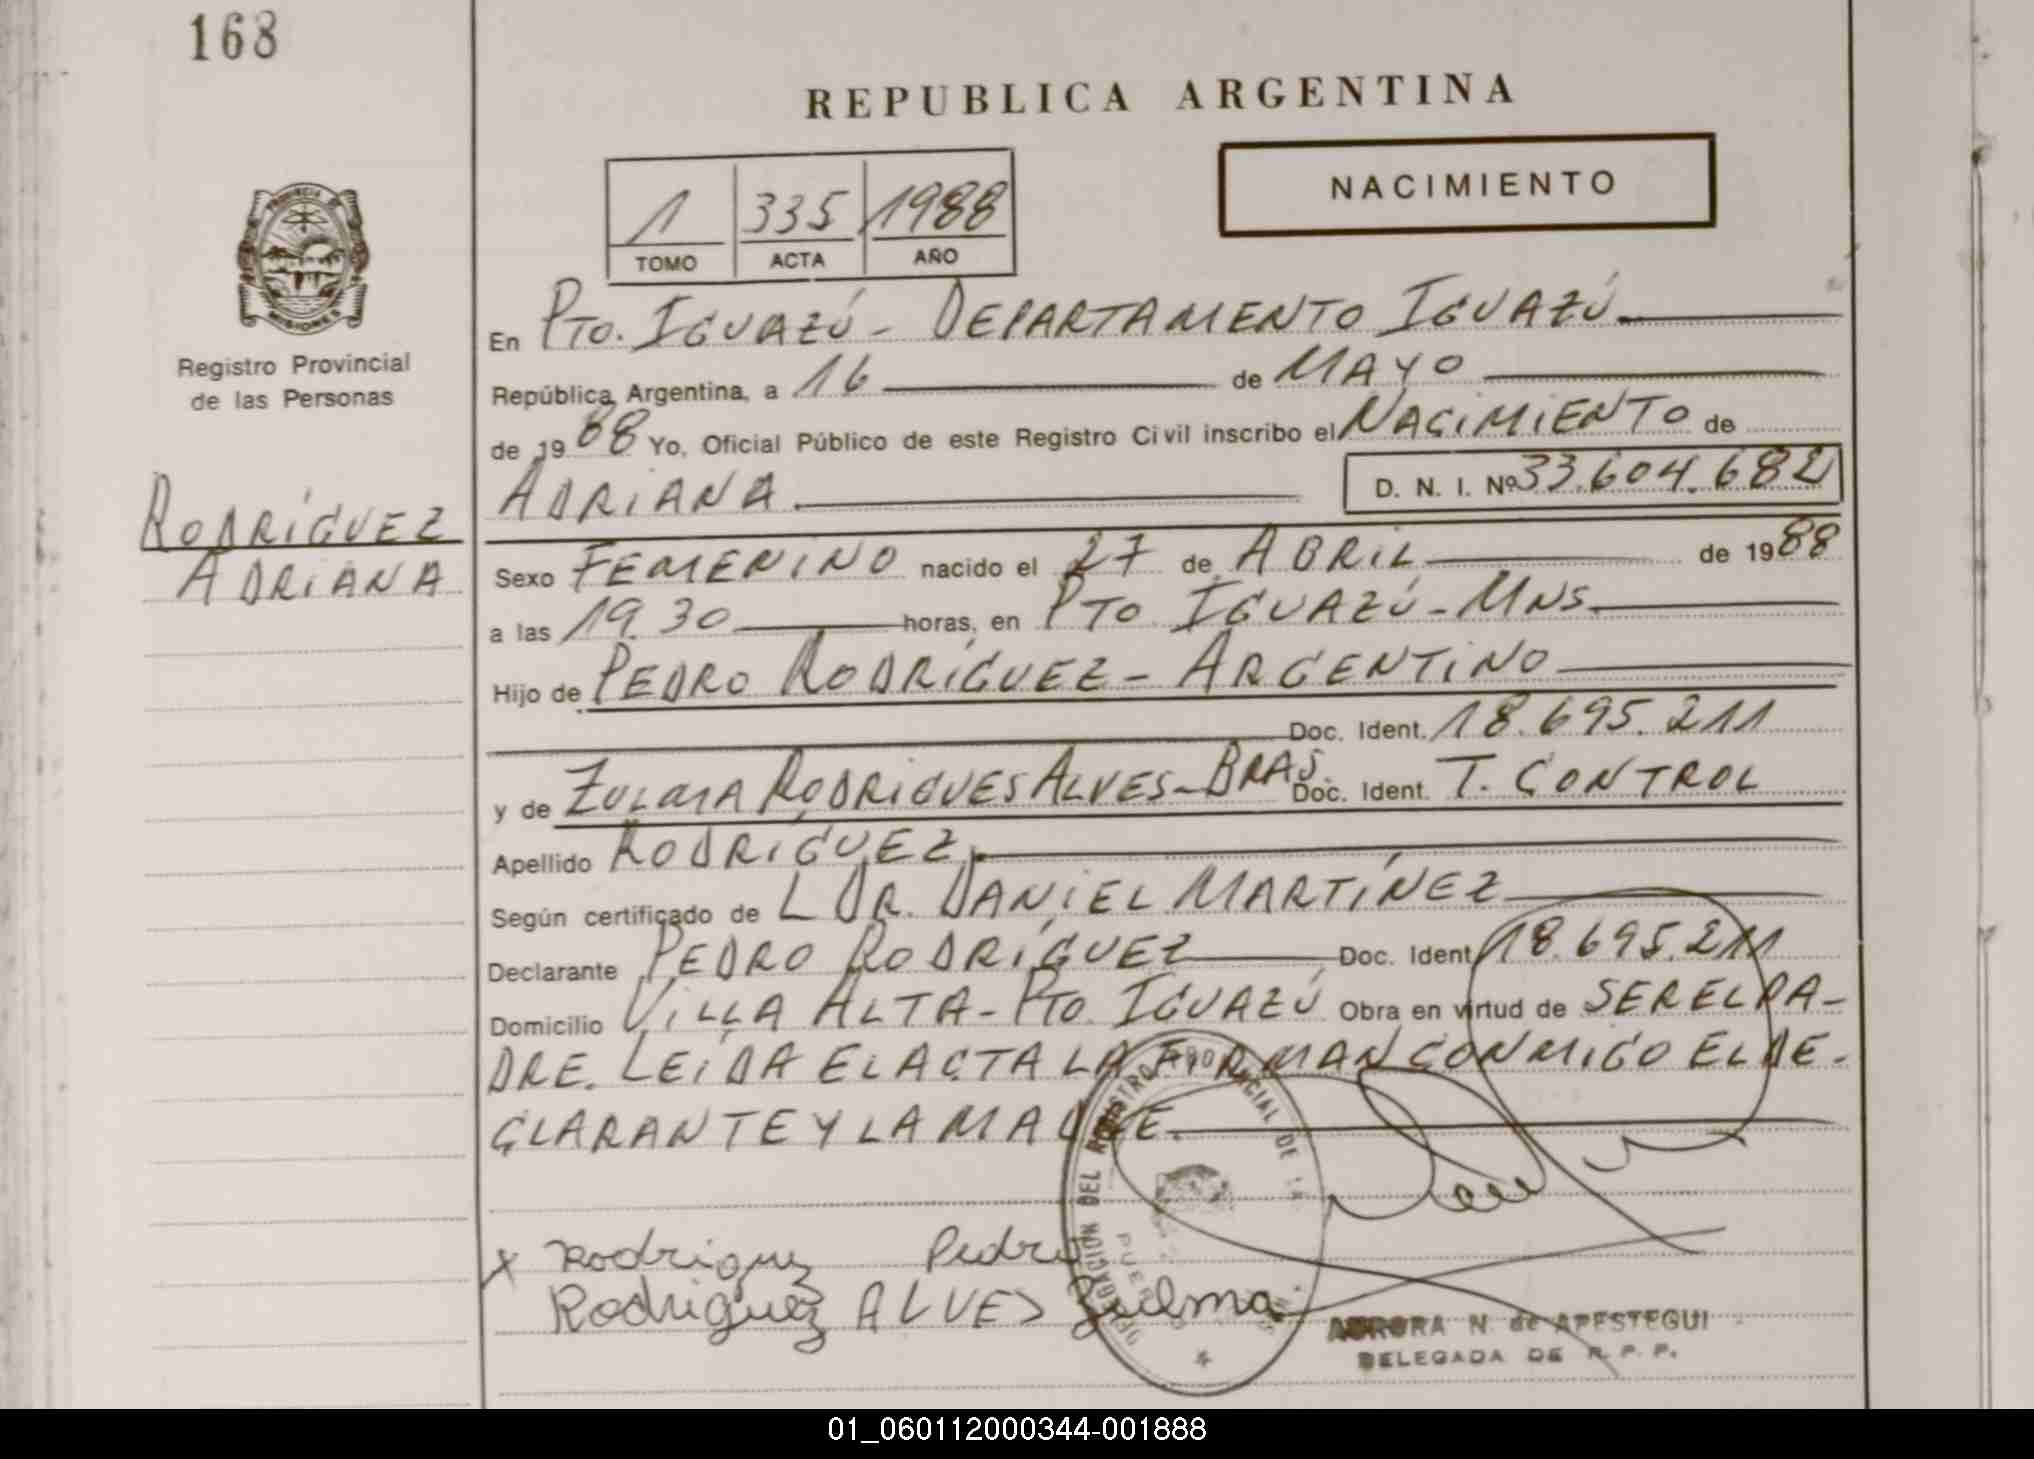 168
REPUBLICA ARGENTINA
NACIMIENTO
1 335 1988
TOMO ACTA AÑO
PROVINCIA DE
MISIONES
Registro Provincial
de las Personas
RODRÍGUEZ
ADRIANA
En PTO. IGUAZÚ - DEPARTAMENTO IGUAZÚ
República Argentina, a 16 de MAYO
de 1988 Yo, Oficial Público de este Registro Civil inscribo el NACIMIENTO de
ADRIANA D. N. I. Nº 33.604.682
Sexo FEMENINO nacido el 27 de ABRIL de 1988
a las 19.30 horas, en PTO. IGUAZÚ - MNS.
Hijo de PEDRO RODRÍGUEZ - ARGENTINO
Doc. Ident. 18.695.211
y de ZULMA RODRIGUES ALVES - BRAS. Doc. Ident. T. CONTROL
Apellido RODRÍGUEZ.
Según certificado de L DR. DANIEL MARTÍNEZ
Declarante PEDRO RODRÍGUEZ Doc. Ident. 18.695.211
Domicilio VILLA ALTA - PTO. IGUAZÚ Obra en virtud de SER EL PA-
DRE. LEÍDA EL ACTA LA FIRMAN CONMIGO EL DE-
CLARANTE Y LA MADRE.
DELEGACION DEL REGISTRO PROVINCIAL DE
x Rodriguez Pedro
Rodriguez ALVES Zulma
AURORA N. de APESTEGUI
DELEGADA DE R. P. P.
01_060112000344-001888